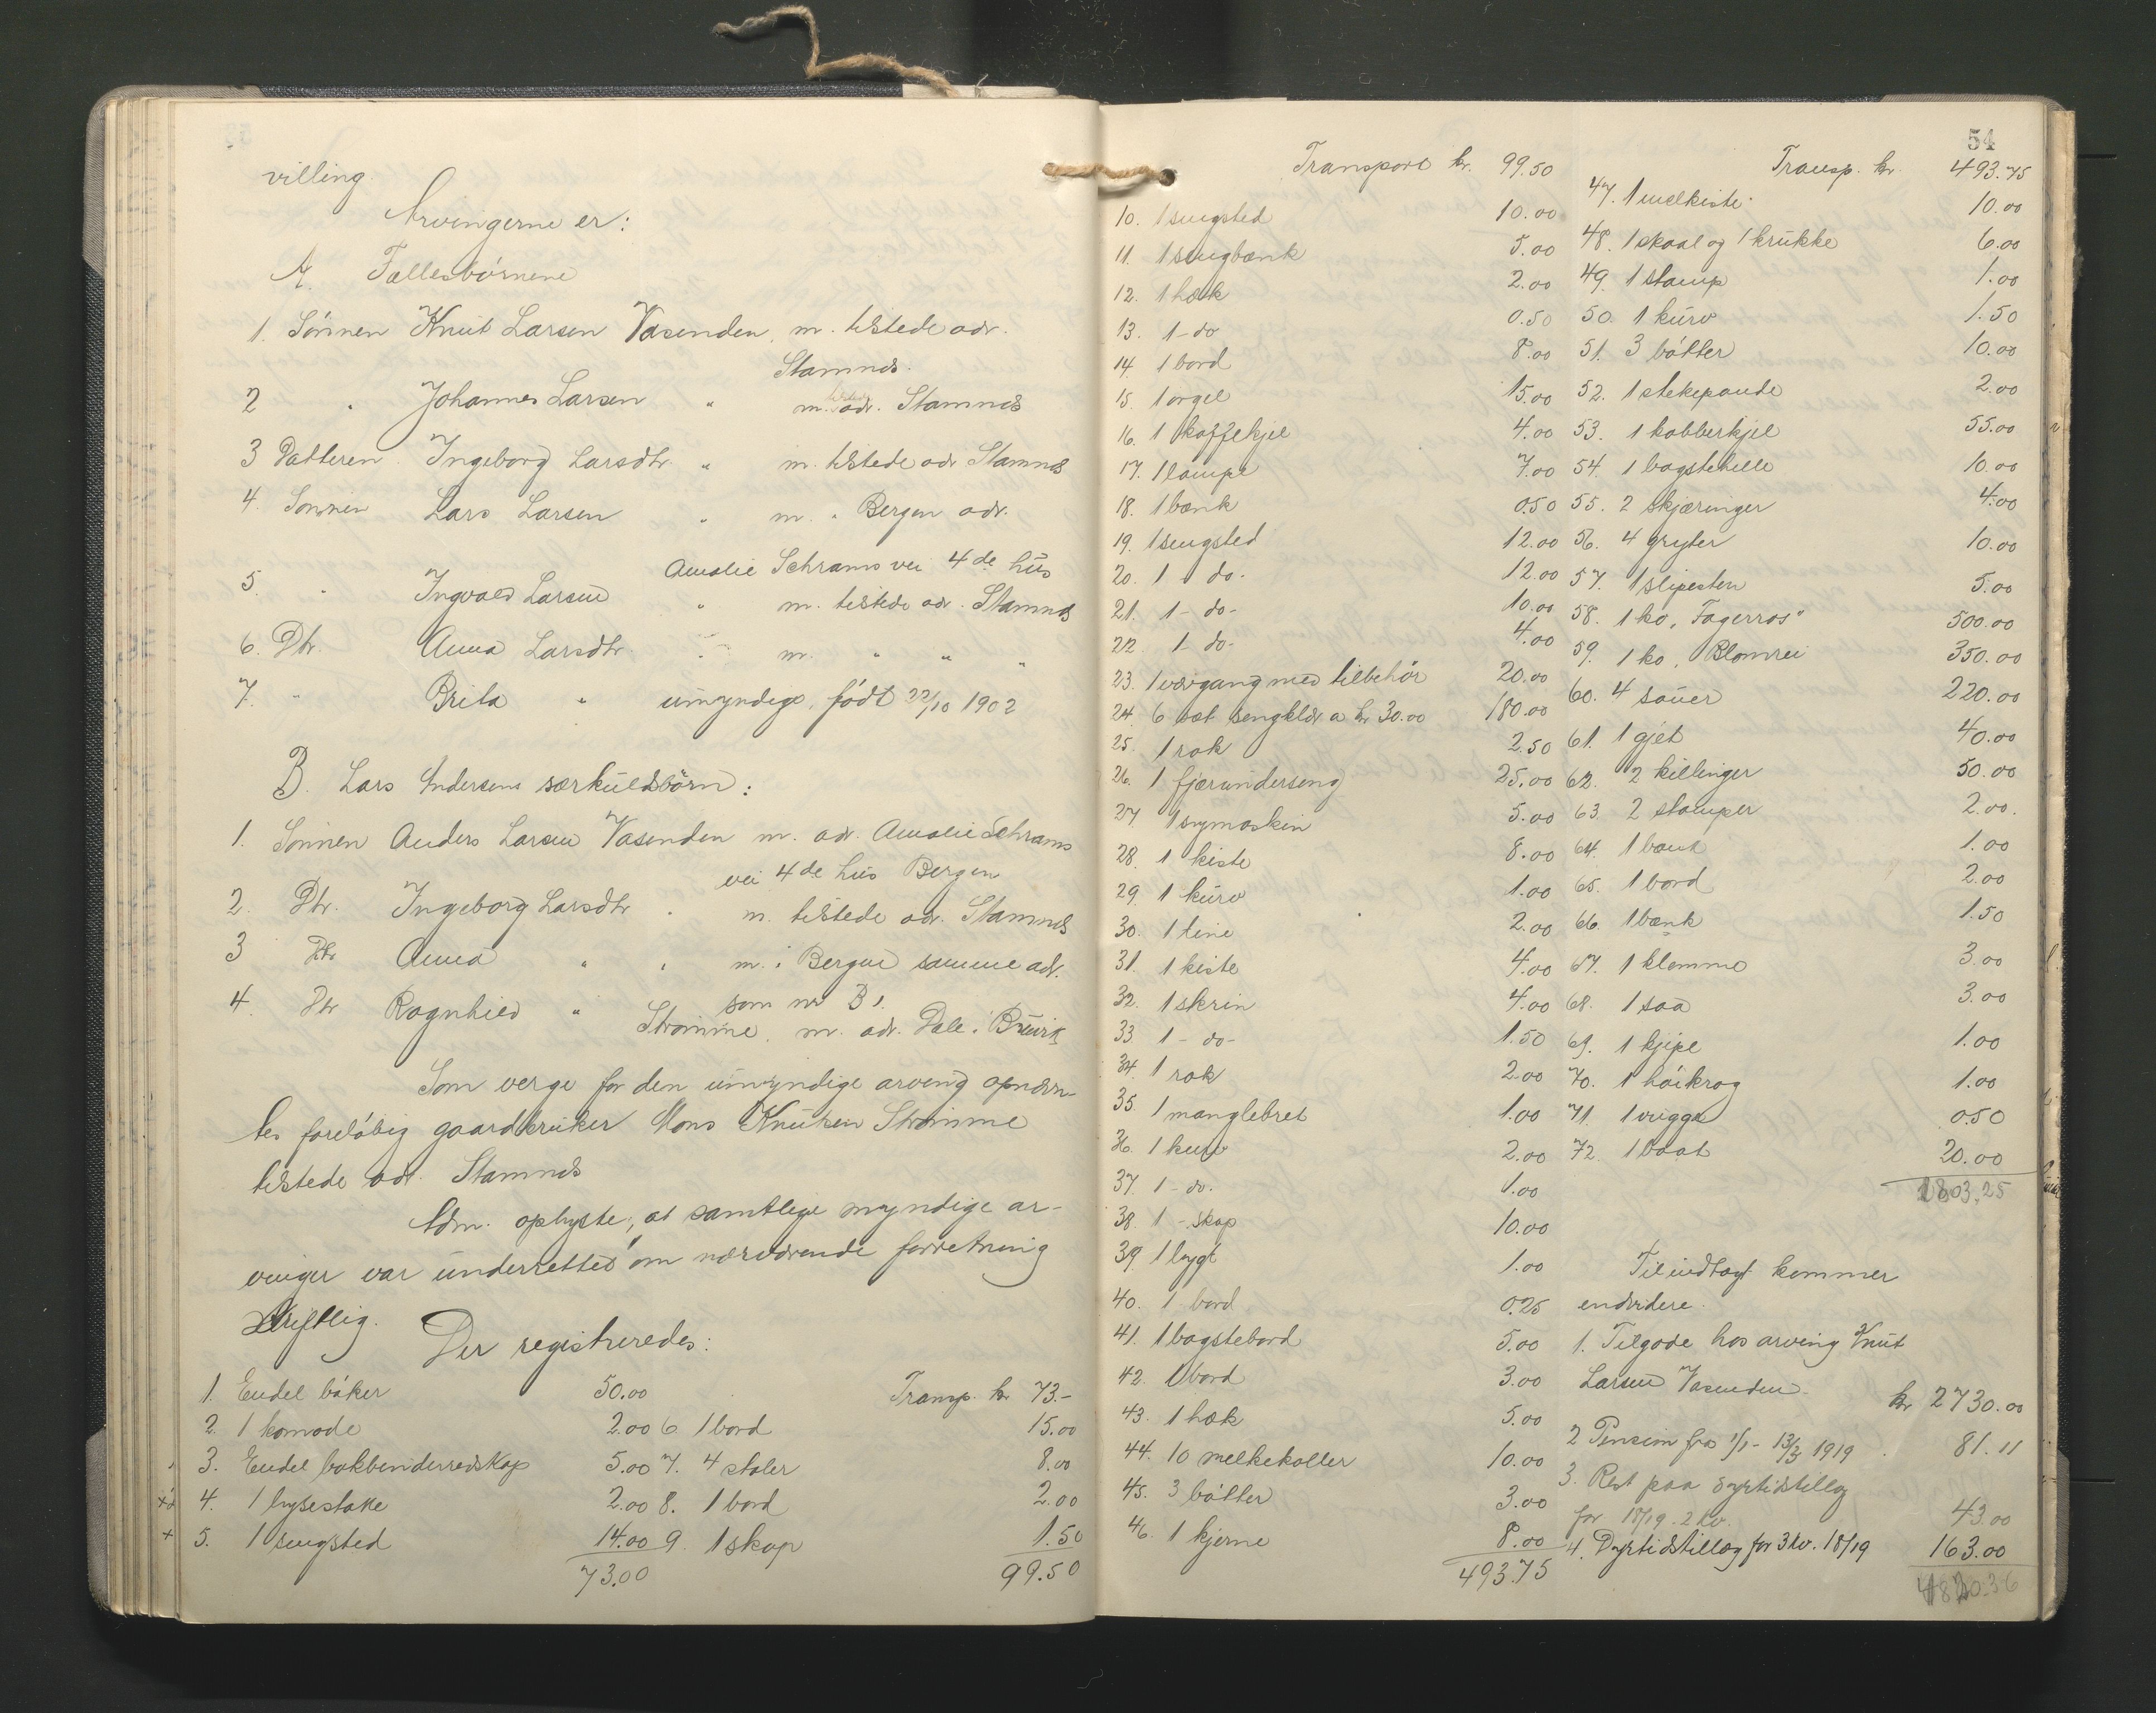 villing.
Arvingerne er:
A. Fællesbørnene
1. Sönnen Knut Larsen Vasenden, m. tilstede adr.
Stamnes.
2 " Johannes Larsen " m. tilstede adr. Stamnes
3 Datteren Ingeborg Larsdtr. " m. tilstede adr Stamnes
4. Sönnen Lars Larsen " m. " Bergen adr.
Amalie Schrams vei 4de hus
5. " Ingvald Larsen " m. tilstede adr. Stamnes
6. Dtr. Anna Larsdtr. " m. " " "
7. " Brita " umyndige, født 22/10 1902
B. Lars Andersens særkuldsbörn:
1. Sönnen Anders Larsen Vasenden m. adr. Amalie Schrams
vei 4de hus Bergen
2. Dtr. Ingeborg Larsdtr " m. tilstede adr. Stamnes
3 Dtr Anna " " m. i Bergen samme adr.
som nr B 1.
4. Dtr Ragnhild " Strømme, m. adr. Dale i Bruvik
Som verge for den umyndige arving opnævn-
tes foreløbig gaardbruker Mons Knutsen Strømme
tilstede adr. Stamnes
Adm. oplyste, at samtlige myndige ar-
vinger var underrettet om nærværende forretning
skriftlig.
Der registreredes:
1. Endel bøker 50.00
2. 1 komode 2.00
3. Endel bokbinderredskap 5.00
4. 1 lysestake 2.00
5. 1 sengsted 14.00
73.00
Transp. kr 73.-
6. 1 bord 15.00
7. 4 stoler 8.00
8. 1 bord 2.00
9. 1 skap 1.50
99.50
54
Transport kr. 99.50
10. 1 sengsted 10.00
11. 1 sengbænk 5.00
12. 1 hæk 2.00
13. 1 - do 0.50
14 1 bord 8.00
15. 1 orgel 15.00
16. 1 kaffekjel 4.00
17. 1 lampe 7.00
18. 1 bænk 0.50
19. 1 sengsted 12.00
20. 1 do. 12.00
21. 1 - do - 10.00
22. 1 - do - 4.00
23. 1 vævgang med tilbehör 20.00
24. 6 sæt sengklær a kr 30.00 180.00
25. 1 rok 2.50
26. 1 fjærunderseng 25.00
27 1 symaskin 5.00
28. 1 kiste 8.00
29. 1 kurv 1.00
30. 1 tine 2.00
31. 1 kiste 4.00
32. 1 skrin 4.00
33 1 - do - 1.50
34. 1 rok 2.00
35. 1 manglebret 1.00
36. 1 kurv 2.00
37. 1 - do. 1.00
38. 1 - skap 10.00
39 1 lygt 1.00
40. 1 bord 0.25
41. 1 bagstebord 5.00
42. 1 bord 3.00
43. 1 hæk 5.00
44. 10 melkekoller 10.00
45. 3 bøtter 3.00
46. 1 kjerne 8.00
493.75
Transp. kr. 493.75
47. 1 melkiste 10.00
48. 1 skaal og 1 krukke 6.00
49. 1 stamp 1.00
50. 1 kurv 1.50
51. 3 bøtter 10.00
52. 1 stekepande 2.00
53. 1 kobberkjel 55.00
54. 1 bagstehelle 10.00
55. 2 skjæringer 4.00
56. 4 gryter 10.00
57. 1 slipesten 5.00
58. 1 ko "Fagerros" 500.00
59. 1 ko, Blomrei 350.00
60. 4 sauer 220.00
61. 1 gjet 40.00
62. 2 killinger 50.00
63. 2 stamper 2.00.
64. 1 bænk 1.00
65. 1 bord 2.00
66. 1 bænk 1.50
67. 1 klemme 3.00
68. 1 saa 3.00
69. 1 kjipe 1.00
70. 1 höikrog 1.00
71. 1 vugga 0.50
72. 1 baat 20.00
1803.25
Til indtægt kommer
endvidere.
1. Tilgode hos arving Knut
Larsen Vasenden kr 2730.00
2 Pension fra 1/1 - 13/3 1919 81.11
3. Rest paa dyrtidstillæg
for 18/19. 2 kv. 43.00
4. Dyrtidstillæg for 3 kv. 18/19 163.00
4820.36